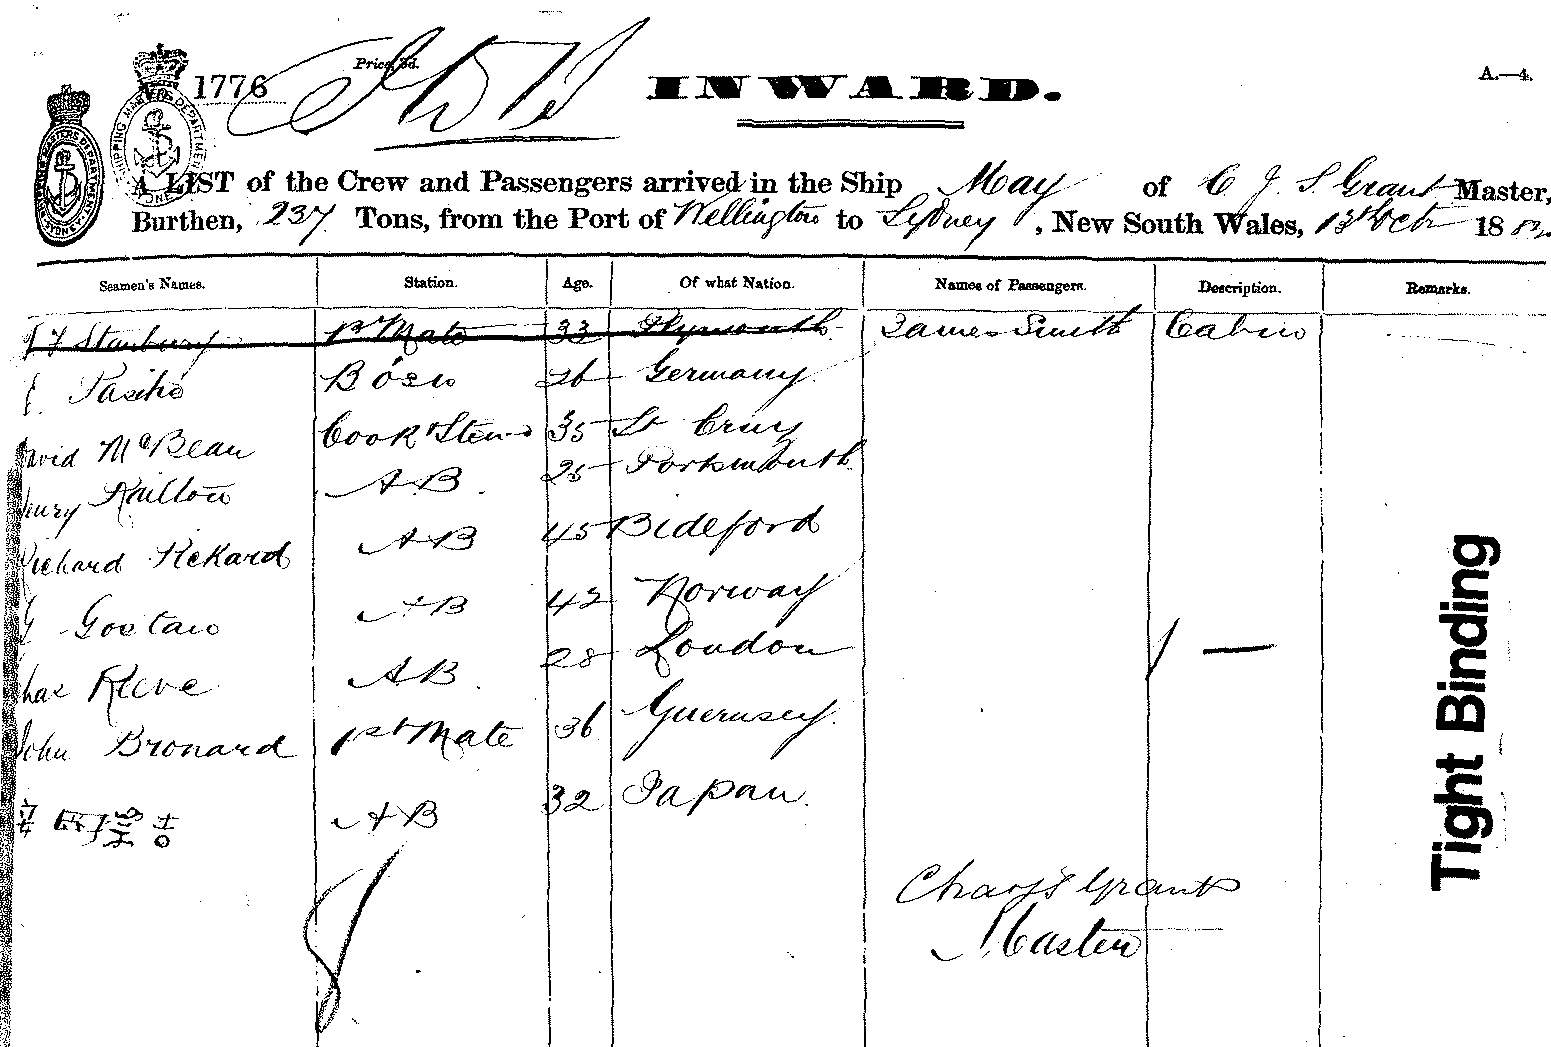 1776
Price, 3d.
INWARD.
A.—4.
A LIST of the Crew and Passengers arrived in the Ship May of C J S Grant Master,
Burthen, 237 Tons, from the Port of Wellington to Sydney, New South Wales, 13th Oct 188
Seamen's Names. Station. Age. Of what Nation. Names of Passengers. Description. Remarks.
Stanbury 1st Mate 33 Plymouth James Smith Cabin
Bosn 26 Germany
David McBean Cook & Stew 35 St Cruz
Henry Railton A B 25 Portsmouth
Richard Rekard A B 45 Bideford
Gostav A B 42 Norway
Chas Reeve A B 28 London
John Bronard 1st Mate 36 Guernsey
A B 32 Japan
Chas J S Grant
Master
Tight Binding